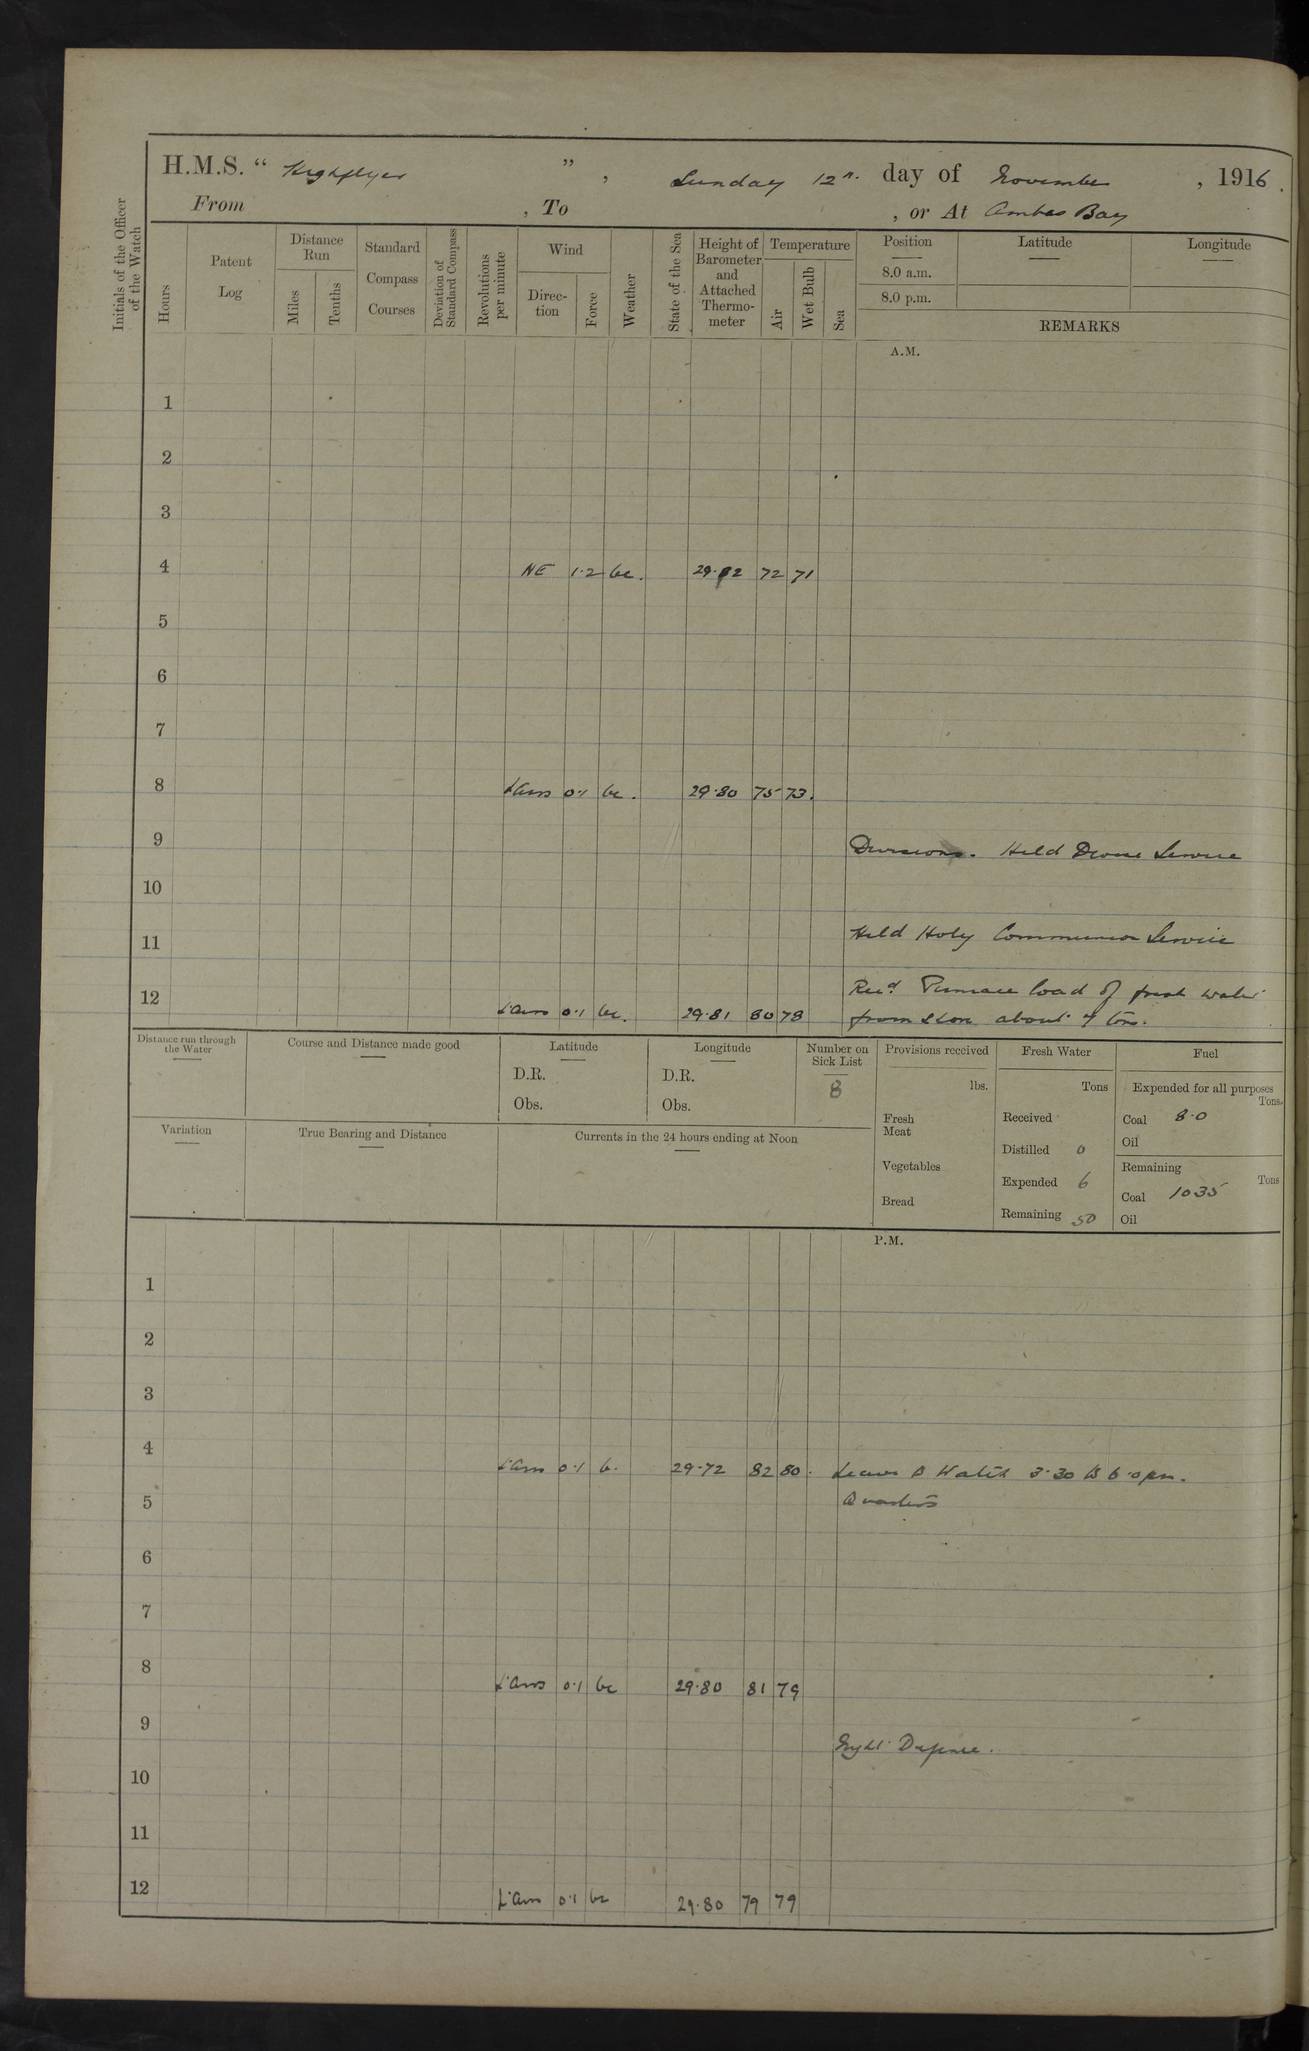 H.M.S. “ Highflyer ” , Sunday 12th day of November , 1916 .
From , To , or At Ambas Bay
Initials of the Officer of the Watch
Hours
Patent Log
Distance Run
Miles
Tenths
Standard Compass Courses
Deviation of Standard Compass
Revolutions per minute
Wind
Direc-tion
Force
Weather
State of the Sea
Height of Barometer and Attached Thermo-meter
Temperature
Air
Wet Bulb
Sea
Position Latitude Longitude
8.0 a.m.
8.0 p.m.
REMARKS
A.M.
1
2
3
4 NE 1.2 bc. 29.82 72 71
5
6
7
8 L'airs 0.1 bc. 29.80 75 73.
9 Divisions. Held Divine Service
10
11 Held Holy Communion Service
Recd. Pinnace load of fresh water
12 L'airs 0.1 bc. 29.81 80 78 from shore about 7 tons.
Distance run through the Water
Course and Distance made good
Latitude
D.R.
Obs.
Longitude
D.R.
Obs.
Number on Sick List
8
Provisions received
lbs.
Fresh Meat
Vegetables
Bread
Fresh Water
Tons
Received
Distilled 0
Expended 6
Remaining 50
Fuel
Expended for all purposes
Tons.
Coal 8.0
Oil
Remaining
Tons
Coal 1035
Oil
Variation
True Bearing and Distance
Currents in the 24 hours ending at Noon
P.M.
1
2
3
4 L'airs 0.1 b. 29.72 82 80. Leave to Watch 3.30 to 6.0 pm.
5 Quarters
6
7
8 L'airs 0.1 bc 29.80 81 79
9 Night Defence.
10
11
12 L'airs 0.1 bc 29.80 79 79